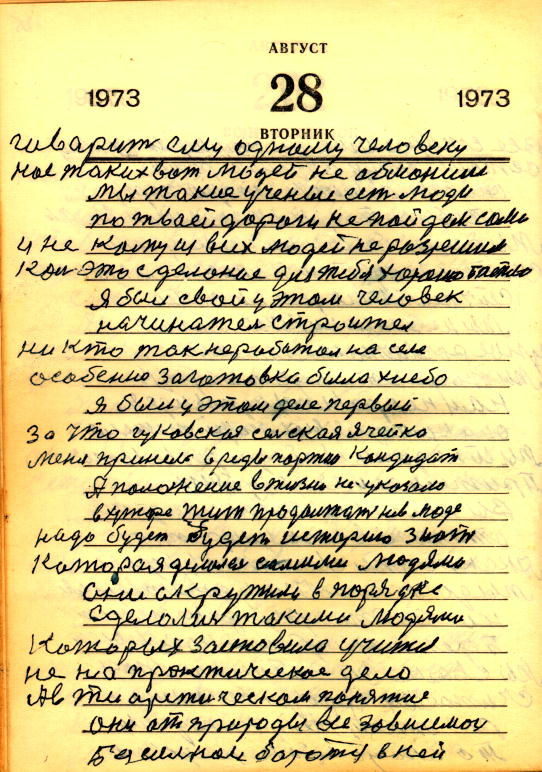 АВГУСТ
1973 28 1973
ВТОРНИК
гаварит ему одному человеку
нас таких вот людей не
мы такие ученые ест люди
по твоей дороги не пойдем сами
и не кому из вих людей не разрешим
это сделоние для тебя хорошо
Я был свой у этом человек
начинател строител
ни кто так неработал на селе
особенно заготовка была хлебо
Я был у этом деле первый
За что гуковская селская ячейко
меня принела в реды портии Кандидат
Я положение в жизни не указало
в хуторе жит продолжат нов люде
надо будет будет историю знат
Которая делолас самими людями
они скрутили в порядке
сделолис такими людями
Которых застовила учится
не на проктическое дело
Ав тиаритическом понятие
они от природы все зовисмои
боготу в ней